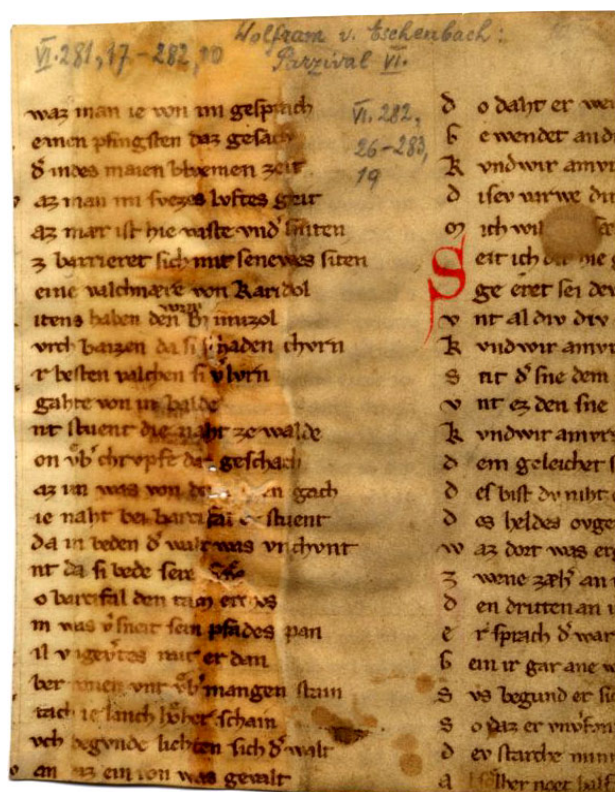 Wolfram v. Eschenbach:
VI. 281, 17.-282, 10
Parzival VI.
waz man ie von im gesprach
einen pfingsten daz gesach
d̓ indes maien blvemen zeit
az man im svezes lvftes geit
az mær ist hie vaste vnd̓ sniten
z parrieret sich mit senewes siten
eine valchnære von Karidol
itens haben den primizol
vrch baizen da si schaden chvrn
r besten valchen si v̓lvrn
gahte von in balde
nt stuent die naht ze walde
on v̓b̓ chropfe daz geschach
az im was von gach
ie naht bei stuent
da in beden d̓ walt was vnchvnt
nt da si bede sere
o barcifal den tach
m was v̓sneit sein pfades pan
il vngev̓tes mit er dan
ber ronen vnt v̓b̓ mangen stain
tach ie lanch hoher schain
vch begvnde liehten sich d̓ walt
an ein ron was gevalt
VI. 282,
26-283,
19
d o daht er wer
b e wendet and
K vndwir amvr
d isev varwe di
m ich wil
Seit ich dir hie
ge eret sei dev
v nt al div div
K vndwir amvr
s nt d̓ sne dem
v nt ez den sne
K vndwir amvrs
d em geleichet s
d es bist dv niht
d es heldes ovge
w az dort was er
z wene zæh̓ an
d en dritten an
e r sprach d̓ war
b ein ir gar ane w
s vs begund er si
s o daz er
d ev starche minn
a halt